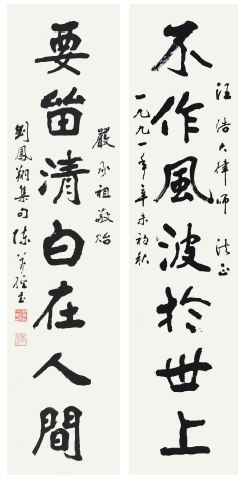 汪浩大律師 法正
不作風波於世上
一九九一年辛未初秋
嚴承祖敬貽
要留清白在人間
劉鳳翔集句 陳